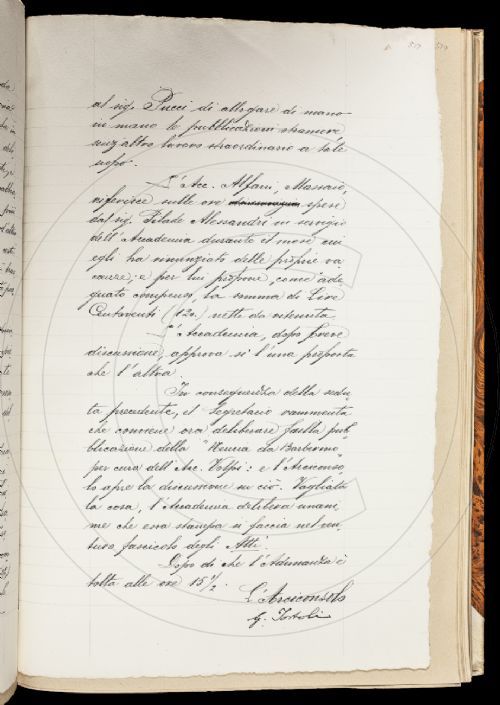 al sig. Pucci di allogare di mano
in mano le pubblicazioni straniere,
senz'altro lavoro straordinario a tale
uopo.
L'Acc. Alfani, Massaio,
riferisce sulle ore spese
dal sig. Pilade Alessandri in servigio
dell'Accademia durante il mese cui
egli ha rinunziato delle proprie va
canze; e per lui propone, come ade
guato compenso, la somma di Lire
Centoventi (120) nette da ritenuta.
L'Accademia, dopo breve
discussione, approva sì l'una proposta
che l'altra.
In conseguenza della sedu
ta precedente, il Segretario rammenta
che conviene ora deliberare sulla pub
blicazione della "Nencia da Barberino"
per cura dell'Acc. Volpi: e l'Arciconso
lo apre la discussione su ciò. Vagliata
la cosa, l'Accademia delibera unani
me che essa stampa si faccia nel ven
turo fascicolo degli Atti.
Dopo di che l'Adunanza è
tolta alle ore 15 1/2.
L'Arciconsolo
G. Tortoli